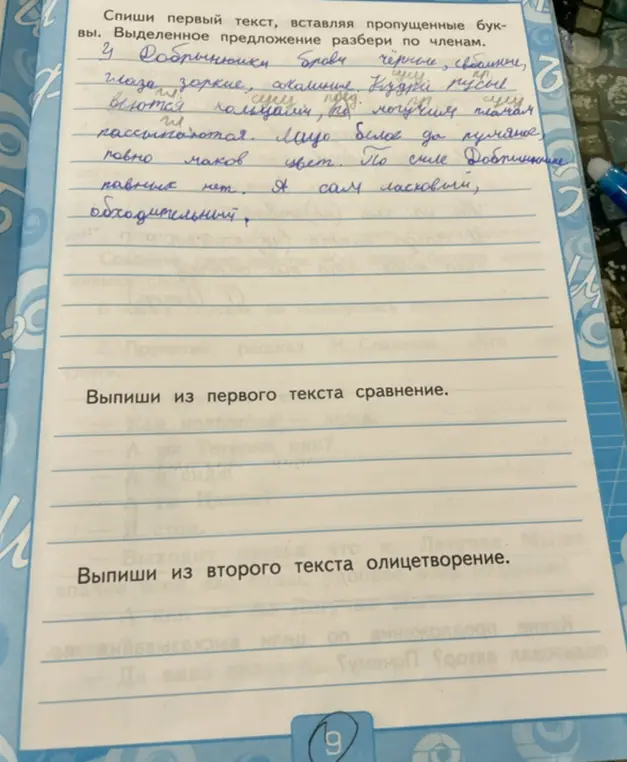 Спиши первый текст, вставляя пропущенные бук-
вы. Выделенное предложение разбери по членам.
У Добрынюшки брови чёрные, соболиные,
глаза зоркие, соколиные. Кудри русые
сущ. пр.
вьются кольцами, по могучим плечам
гл. сущ. пред. пр. сущ.
рассыпаются. Лицо белое да румяное,
гл.
ровно маков цвет. По силе Добрынюшке
равных нет. А сам ласковый,
обходительный.
Выпиши из первого текста сравнение.
Выпиши из второго текста олицетворение.
9